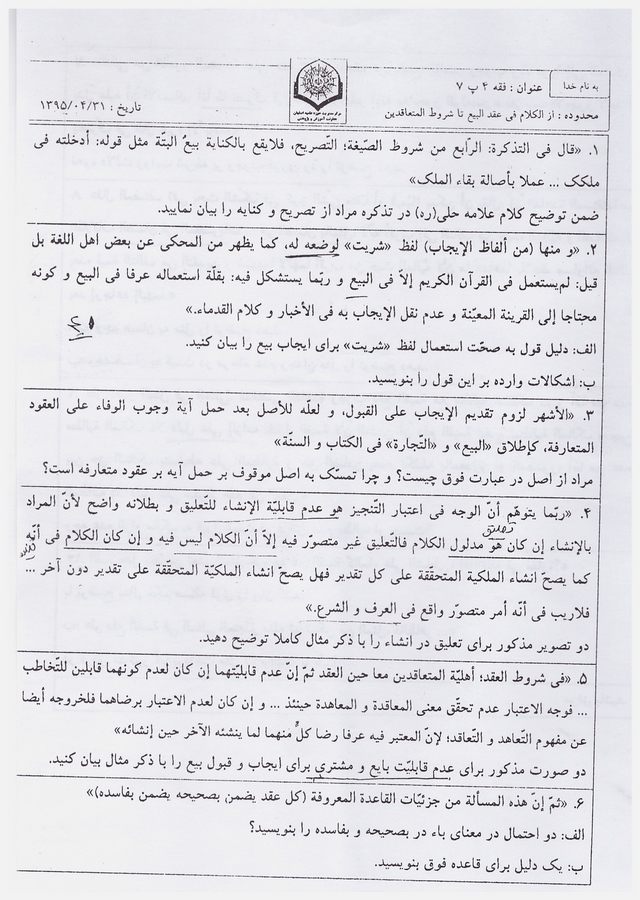 به نام خدا
عنوان : فقه ۴ پ ۷
محدوده : از الکلام فی عقد البیع تا شروط المتعاقدین
تاریخ : ۱۳۹۵/۰۴/۳۱
۱. «قال فی التذکرة: الرّابع من شروط الصّیغة؛ التّصریح، فلایقع بالکنایة بیعٌ البتّة مثل قوله: أدخلته فی
ملکک ... عملا بأصالة بقاء الملک»
ضمن توضیح کلام علامه حلی(ره) در تذکره مراد از تصریح و کنایه را بیان نمایید.
۲. «و منها (من ألفاظ الإیجاب) لفظ «شریت» لوضعه له، کما یظهر من المحکی عن بعض اهل اللغة بل
قیل: لم‌یستعمل فی القرآن الکریم إلاّ فی البیع و ربّما یستشکل فیه: بقلّة استعماله عرفا فی البیع و کونه
محتاجا إلی القرینة المعیّنة و عدم نقل الإیجاب به فی الأخبار و کلام القدماء.»
الف: دلیل قول به صحّت استعمال لفظ «شریت» برای ایجاب بیع را بیان کنید.
ب: اشکالات وارده بر این قول را بنویسید.
۳. «الأشهر لزوم تقدیم الإیجاب علی القبول، و لعلّه للأصل بعد حمل آیة وجوب الوفاء علی العقود
المتعارفة، کإطلاق «البیع» و «التّجارة» فی الکتاب و السنّة»
مراد از اصل در عبارت فوق چیست؟ و چرا تمسّک به اصل موقوف بر حمل آیه بر عقود متعارفه است؟
۴. «ربّما یتوهّم أنّ الوجه فی اعتبار التّنجیز هو عدم قابلیّة الإنشاء للتّعلیق و بطلانه واضح لأنّ المراد
تعلیق
بالإنشاء إن کان هو مدلول الکلام فالتّعلیق غیر متصوّر فیه إلاّ أنّ الکلام لیس فیه و إن کان الکلام فی أنّه
کما یصحّ انشاء الملکیة المتحقّقة علی کل تقدیر فهل یصحّ انشاء الملکیّة المتحقّقة علی تقدیر دون آخر ...
فلاریب فی أنّه أمر متصوّر واقع فی العرف و الشرع.»
دو تصویر مذکور برای تعلیق در انشاء را با ذکر مثال کاملا توضیح دهید.
۵. «فی شروط العقد؛ أهلیّة المتعاقدین معا حین العقد ثمّ إنّ عدم قابلیّتهما إن کان لعدم کونهما قابلین للتّخاطب
... فوجه الاعتبار عدم تحقّق معنی المعاقدة و المعاهدة حینئذ ... و إن کان لعدم الاعتبار برضاهما فلخروجه أیضا
عن مفهوم التّعاهد و التّعاقد؛ لإنّ المعتبر فیه عرفا رضا کلٌّ منهما لما ینشئه الآخر حین إنشائه»
دو صورت مذکور برای عدم قابلیّت بایع و مشتری برای ایجاب و قبول بیع را با ذکر مثال بیان کنید.
۶. «ثمّ إنّ هذه المسألة من جزئیّات القاعدة المعروفة (کل عقد یضمن بصحیحه یضمن بفاسده)»
الف: دو احتمال در معنای باء در بصحیحه و بفاسده را بنویسید؟
ب: یک دلیل برای قاعده فوق بنویسید.